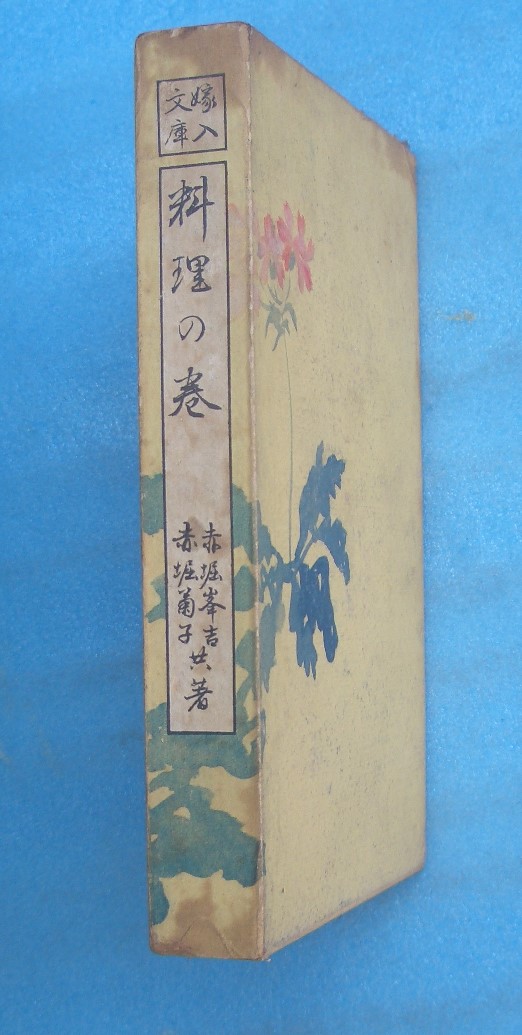 嫁入
文庫
料理の巻
赤堀峯吉
赤堀菊子
共著